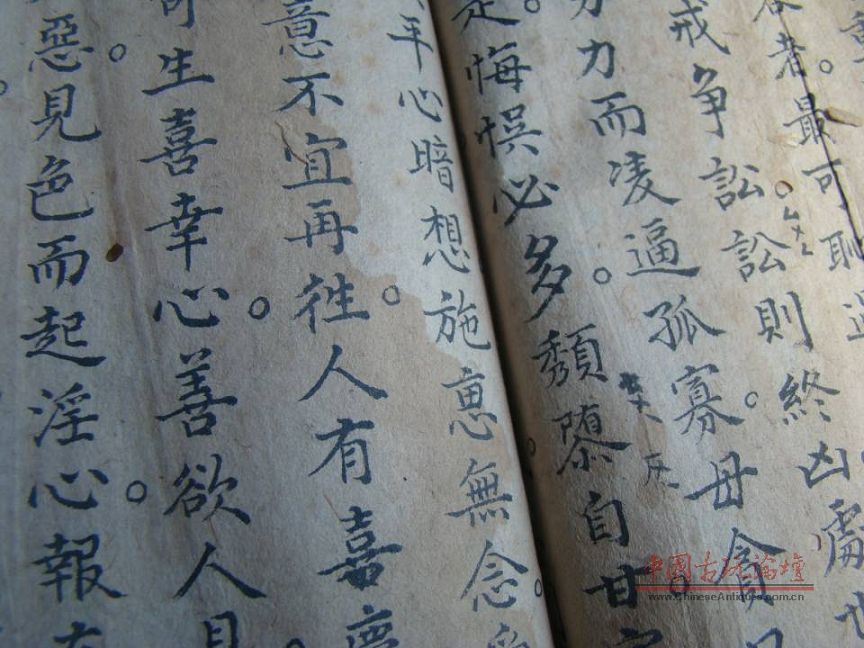 容者。最可恥遇
戒争訟。訟則終凶處世
力而凌逼孤寡。毋貪口
是。悔悞必多。頽隳自甘家
平心暗想施恵無念。受
意不宜再徃。人有喜慶
可生喜幸心。善欲人見
惡。見色而起淫心。報在
中國古玩論壇
www.ChineseAntiques.com.cn